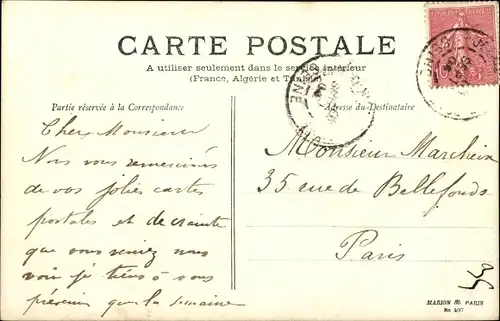 CARTE POSTALE
A utiliser seulement dans le service intérieur
(France, Algérie et Tunisie)
Partie réservée à la Correspondance
Adresse du Destinataire
Cher Monsieur
Nous vous remercions
de vos jolies cartes
postales et de crainte
que vous veniez nous
voir je tiens à vous
prévenir que la semaine
Monsieur Marcheix
35 rue de Bellefonds
Paris
MARION PARIS
No 497